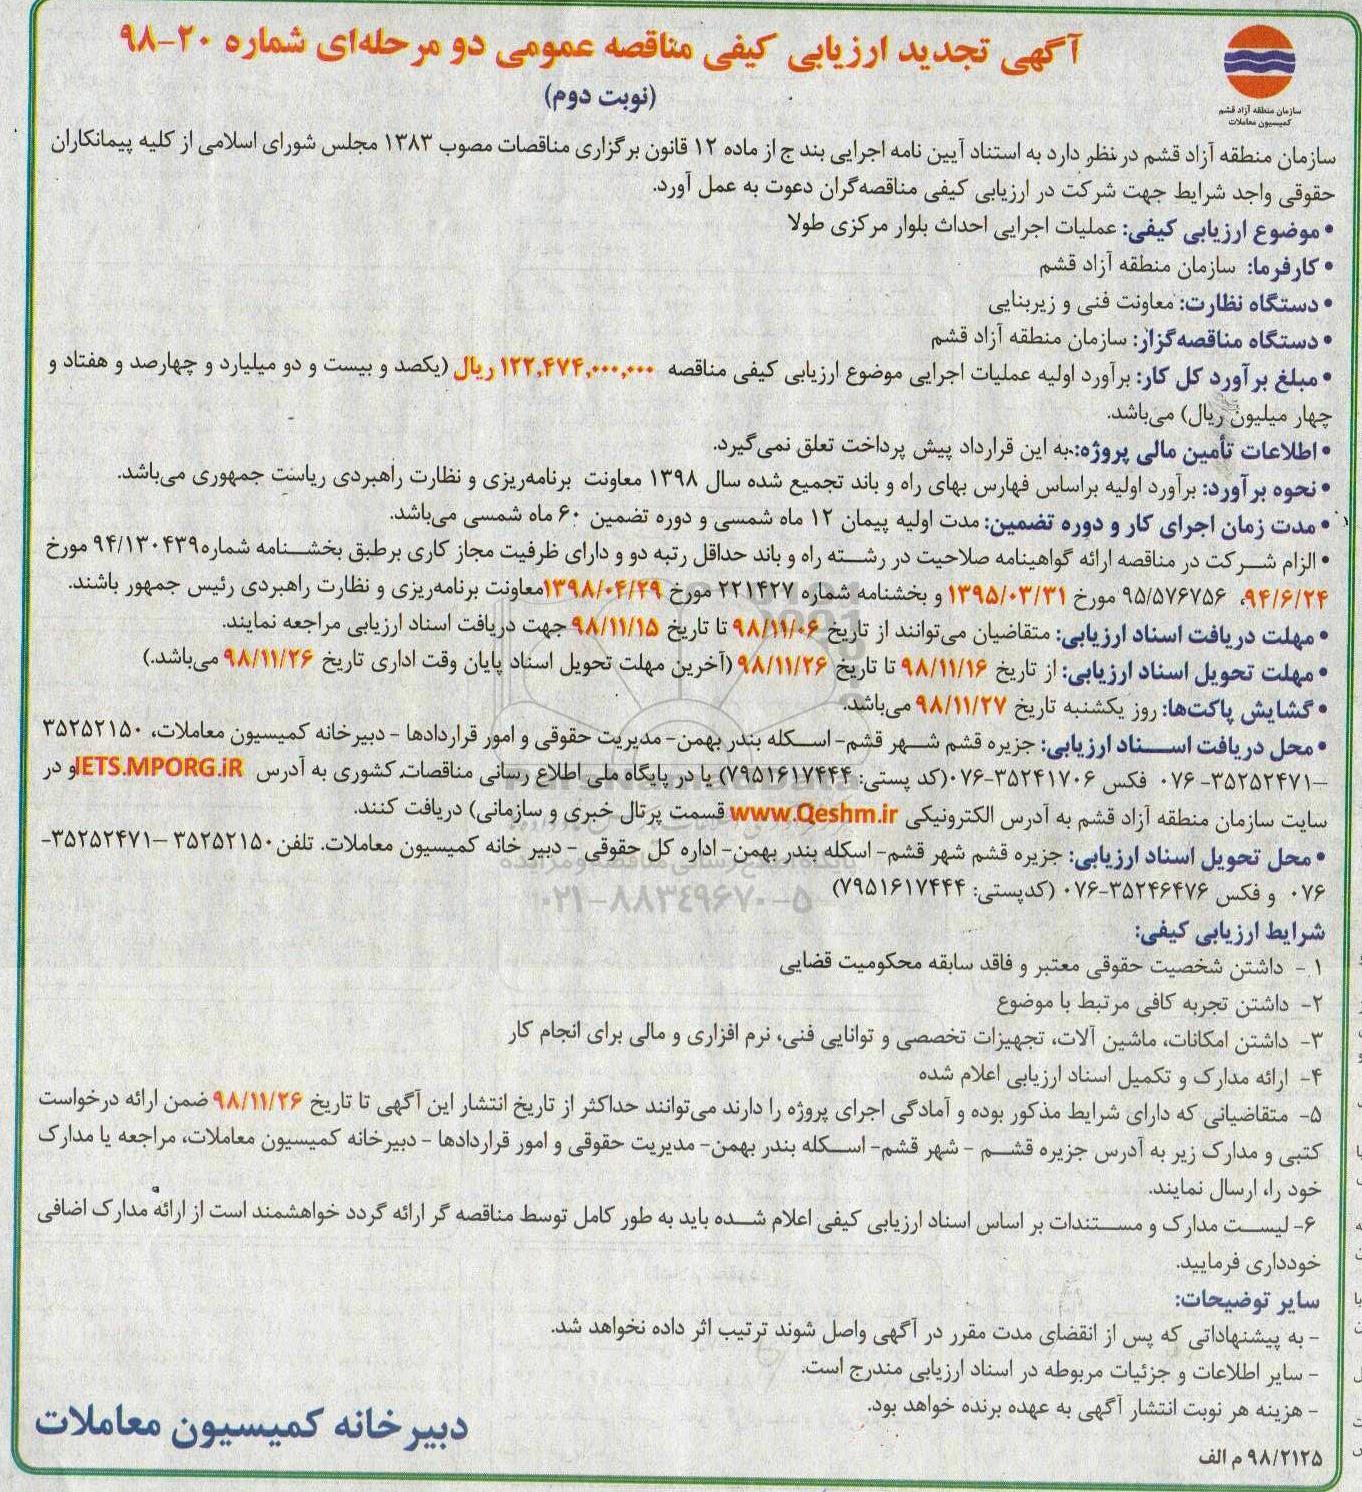 آگهی تجدید ارزیابی کیفی مناقصه عمومی دو مرحله‌ای شماره ۲۰-۹۸
(نوبت دوم)
سازمان منطقه آزاد قشم
کمیسیون معاملات
سازمان منطقه آزاد قشم در نظر دارد به استناد آیین نامه اجرایی بند ج از ماده ۱۲ قانون برگزاری مناقصات مصوب ۱۳۸۳ مجلس شورای اسلامی از کلیه پیمانکاران
حقوقی واجد شرایط جهت شرکت در ارزیابی کیفی مناقصه‌گران دعوت به عمل آورد.
• موضوع ارزیابی کیفی: عملیات اجرایی احداث بلوار مرکزی طولا
• کارفرما: سازمان منطقه آزاد قشم
• دستگاه نظارت: معاونت فنی و زیربنایی
• دستگاه مناقصه‌گزار: سازمان منطقه آزاد قشم
• مبلغ برآورد کل کار: برآورد اولیه عملیات اجرایی موضوع ارزیابی کیفی مناقصه ۱۲۲,۴۷۴,۰۰۰,۰۰۰ ریال (یکصد و بیست و دو میلیارد و چهارصد و هفتاد و
چهار میلیون ریال) می‌باشد.
• اطلاعات تأمین مالی پروژه: به این قرارداد پیش پرداخت تعلق نمی‌گیرد.
• نحوه برآورد: برآورد اولیه براساس فهارس بهای راه و باند تجمیع شده سال ۱۳۹۸ معاونت برنامه‌ریزی و نظارت راهبردی ریاست جمهوری می‌باشد.
• مدت زمان اجرای کار و دوره تضمین: مدت اولیه پیمان ۱۲ ماه شمسی و دوره تضمین ۶۰ ماه شمسی می‌باشد.
• الزام شرکت در مناقصه ارائه گواهینامه صلاحیت در رشته راه و باند حداقل رتبه دو و دارای ظرفیت مجاز کاری برطبق بخشنامه شماره ۹۴/۱۳۰۴۳۹ مورخ
۹۴/۶/۲۴، ۹۵/۵۷۶۷۵۶ مورخ ۱۳۹۵/۰۳/۳۱ و بخشنامه شماره ۲۲۱۴۲۷ مورخ ۱۳۹۸/۰۴/۲۹ معاونت برنامه‌ریزی و نظارت راهبردی رئیس جمهور باشند.
• مهلت دریافت اسناد ارزیابی: متقاضیان می‌توانند از تاریخ ۹۸/۱۱/۰۶ تا تاریخ ۹۸/۱۱/۱۵ جهت دریافت اسناد ارزیابی مراجعه نمایند.
• مهلت تحویل اسناد ارزیابی: از تاریخ ۹۸/۱۱/۱۶ تا تاریخ ۹۸/۱۱/۲۶ (آخرین مهلت تحویل اسناد پایان وقت اداری تاریخ ۹۸/۱۱/۲۶ می‌باشد.)
• گشایش پاکت‌ها: روز یکشنبه تاریخ ۹۸/۱۱/۲۷ می‌باشد.
• محل دریافت اسناد ارزیابی: جزیره قشم شهر قشم- اسکله بندر بهمن- مدیریت حقوقی و امور قراردادها - دبیرخانه کمیسیون معاملات، ۳۵۲۵۲۱۵۰
–۳۵۲۵۲۴۷۱- ۰۷۶ فکس ۳۵۲۴۱۷۰۶-۰۷۶ (کد پستی: ۷۹۵۱۶۱۷۴۴۴) یا در پایگاه ملی اطلاع رسانی مناقصات کشوری به آدرس IETS.MPORG.iR و در
سایت سازمان منطقه آزاد قشم به آدرس الکترونیکی www.Qeshm.ir قسمت پرتال خبری و سازمانی) دریافت کنند.
• محل تحویل اسناد ارزیابی: جزیره قشم شهر قشم- اسکله بندر بهمن- اداره کل حقوقی - دبیر خانه کمیسیون معاملات. تلفن ۳۵۲۵۲۱۵۰ –۳۵۲۵۲۴۷۱-
۰۷۶ و فکس ۳۵۲۴۶۴۷۶-۰۷۶ (کدپستی: ۷۹۵۱۶۱۷۴۴۴)
۰۲۱-۸۸۳۴۹۶۷۰-۵
شرایط ارزیابی کیفی:
۱- داشتن شخصیت حقوقی معتبر و فاقد سابقه محکومیت قضایی
۲- داشتن تجربه کافی مرتبط با موضوع
۳- داشتن امکانات، ماشین آلات، تجهیزات تخصصی و توانایی فنی، نرم افزاری و مالی برای انجام کار
۴- ارائه مدارک و تکمیل اسناد ارزیابی اعلام شده
۵- متقاضیانی که دارای شرایط مذکور بوده و آمادگی اجرای پروژه را دارند می‌توانند حداکثر از تاریخ انتشار این آگهی تا تاریخ ۹۸/۱۱/۲۶ ضمن ارائه درخواست
کتبی و مدارک زیر به آدرس جزیره قشم - شهر قشم- اسکله بندر بهمن- مدیریت حقوقی و امور قراردادها - دبیرخانه کمیسیون معاملات، مراجعه یا مدارک
خود را، ارسال نمایند.
۶- لیست مدارک و مستندات بر اساس اسناد ارزیابی کیفی اعلام شده باید به طور کامل توسط مناقصه گر ارائه گردد خواهشمند است از ارائه مدارک اضافی
خودداری فرمایید.
سایر توضیحات:
- به پیشنهاداتی که پس از انقضای مدت مقرر در آگهی واصل شوند ترتیب اثر داده نخواهد شد.
- سایر اطلاعات و جزئیات مربوطه در اسناد ارزیابی مندرج است.
- هزینه هر نوبت انتشار آگهی به عهده برنده خواهد بود.
۹۸/۲۱۲۵ م الف
دبیرخانه کمیسیون معاملات